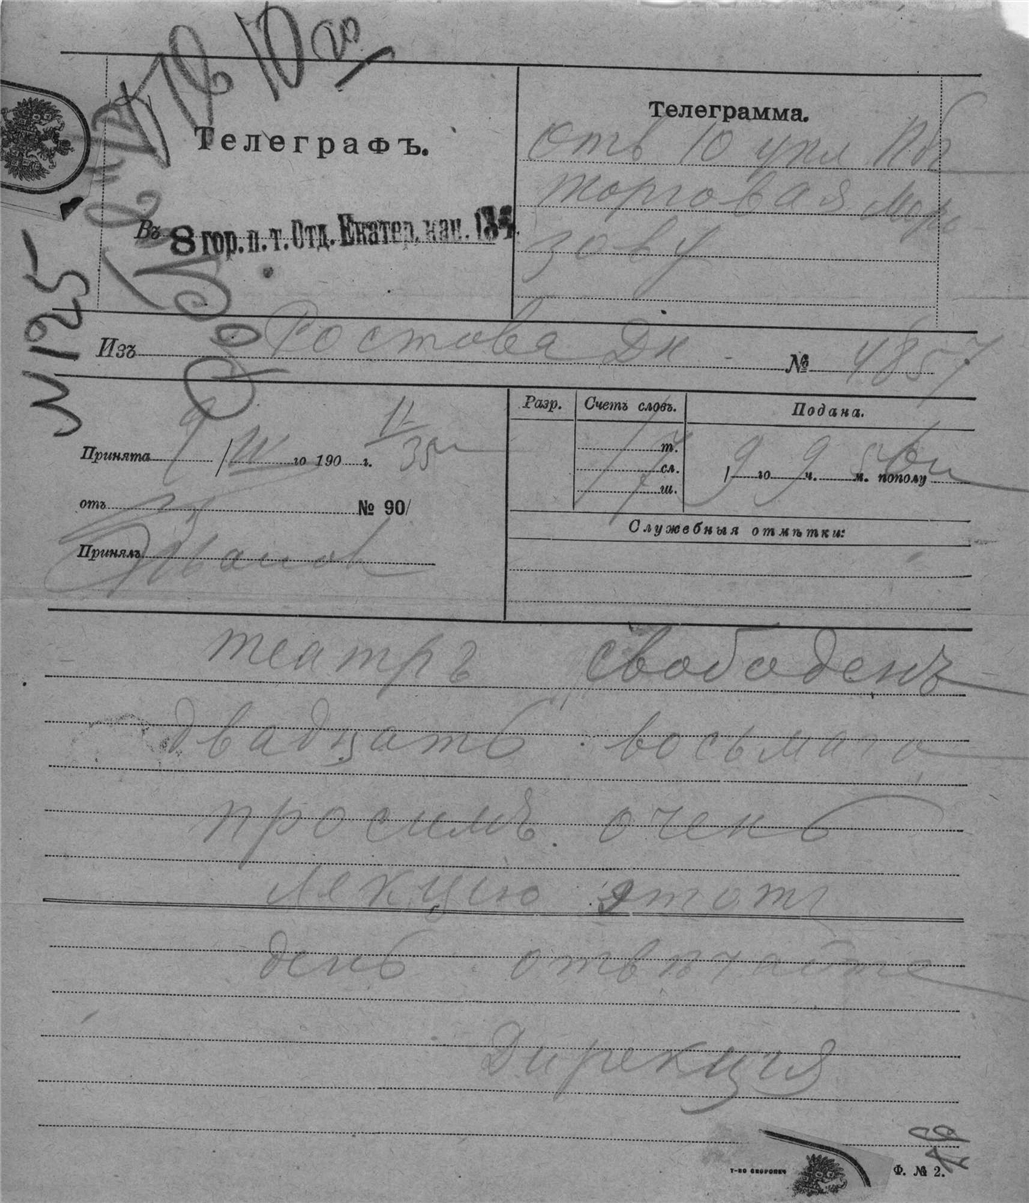 Телеграфъ.
Въ 8 гор. п. т. Отд. Екатер. кан.
Телеграмма.
отв 10 упл Пбг
торговая Моро
зову
№ 125
Изъ Ростова Дн № 4857
Принята 9/III го 190 г. 11/35
отъ № 90/
Принялъ
Разр. Счетъ словъ. Подана.
т.
17 сл. 9 го 9 ч. м. пополу
ш.
Служебныя отмѣтки:
театръ свободенъ
двадцать восьмаго
просимъ очень
лекцию этотъ
день отвѣчайте
Дирекция
Ф. № 2.